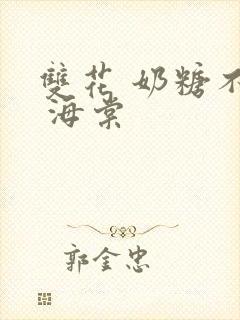 雙花 奶糖不
海棠
郭金忠